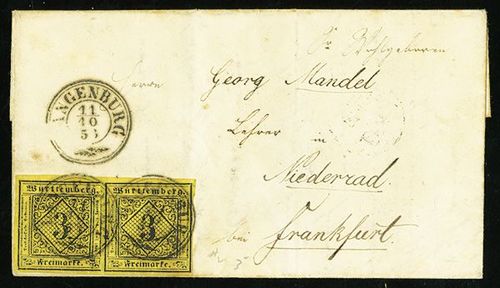 Sr Wohlgeboren
Herrn
Georg Mandel
Lehrer in
Niederrad
bei Frankfurt.
LANGENBURG
11
10
53
Württemberg.
3
Freimarke.
Württemberg.
3
Freimarke.